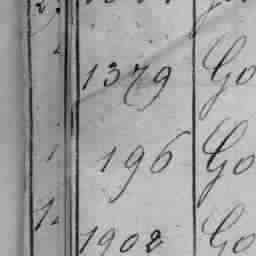 2.
1379 Go
1 196 Go
1. 1908 Go